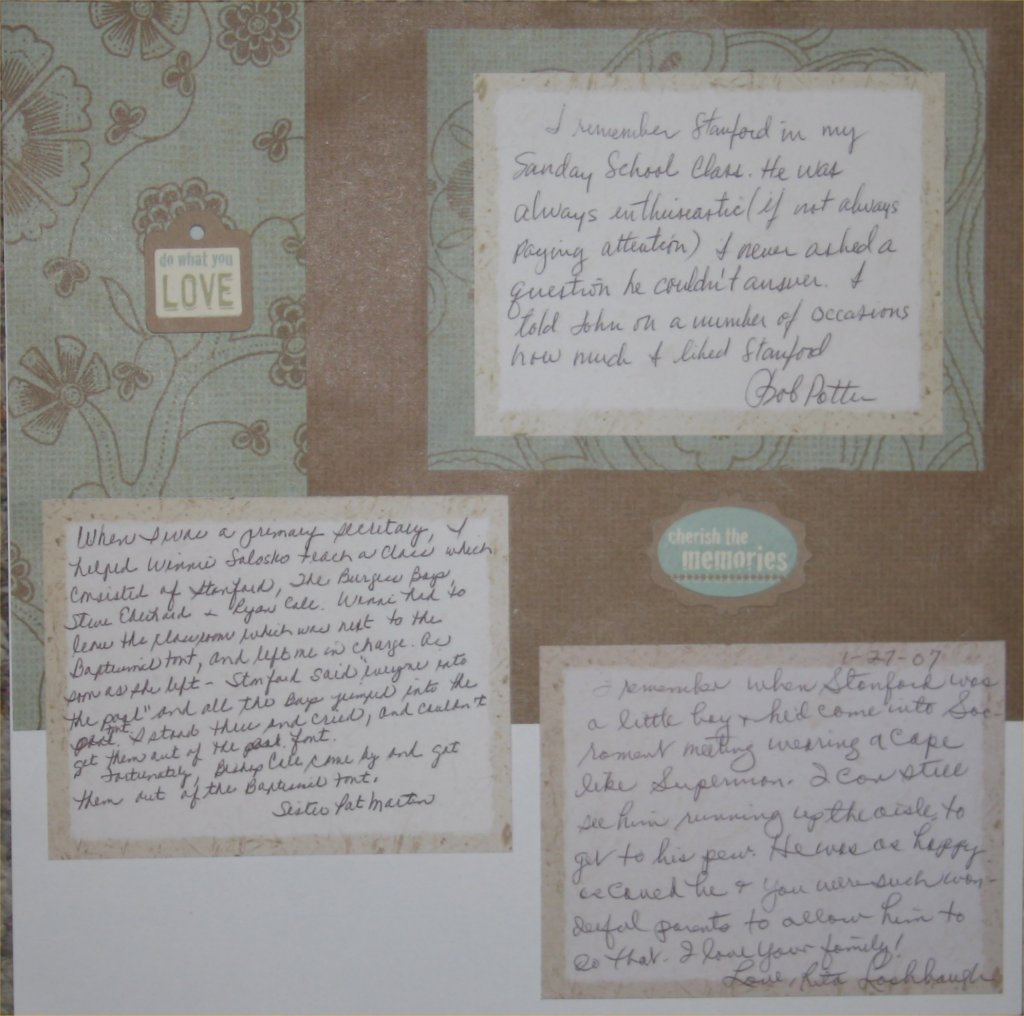 do what you
LOVE
I remember Stanford in my
Sunday School Class. He was
always enthusiastic (if not always
paying attention) I never asked a
question he couldn't answer. I
told John on a number of occasions
how much I liked Stanford
Bob Potter
cherish the
memories
When I was a primary secretary, I
helped Winnie Solosko teach a class which
consisted of Stanford, The Burgess Boys,
Steve Eberhard & Ryan Cale. Winnie had to
leave the classroom which was next to the
Baptismal Font, and left me in charge. As
soon as she left - Stanford said "everyone into
the pool" and all the Boys jumped into the
font. I stood there and cried, and couldn't
get them out of the font.
Fortunately, Bishop Cale come by and get
them out of the Baptismal Font.
Sister Pat Martin
1-27-07
I remember when Stanford was
a little boy & he'd come into Sac-
rament meeting wearing a cape
like Superman. I can still
see him running up the aisle, to
get to his pew. He was as happy
as could be & you were such won-
derful parents to allow him to
do that. I love your family!
Love, Rita